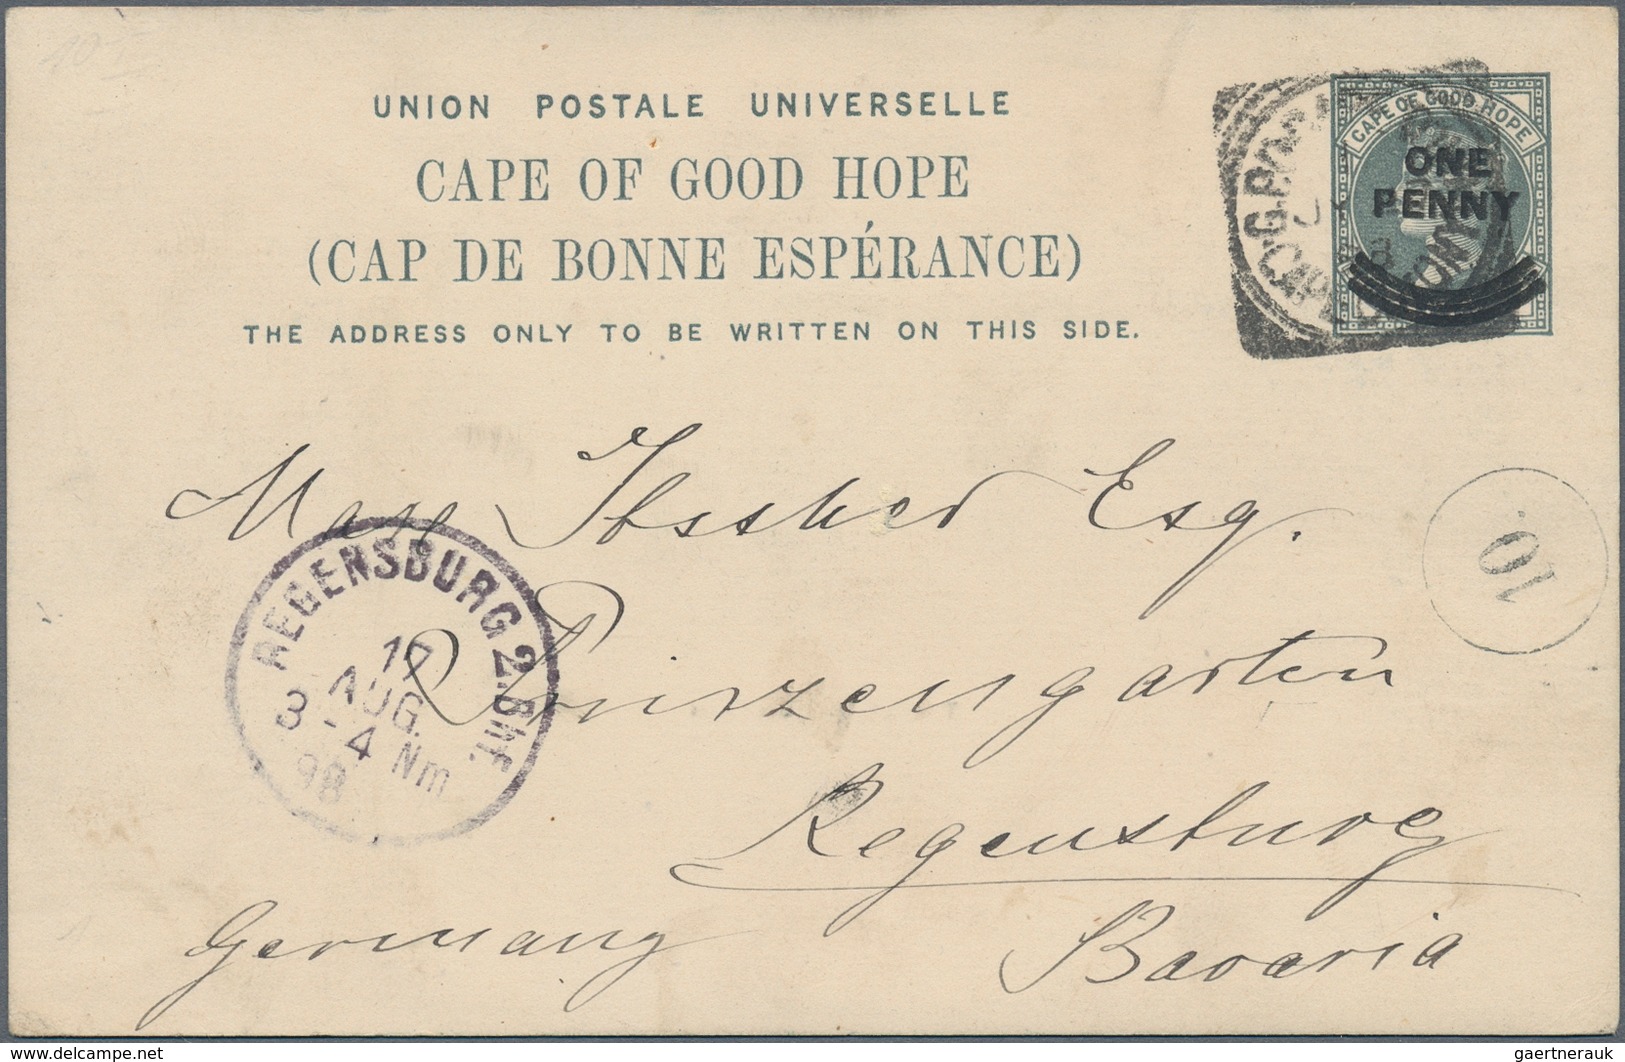 UNION POSTALE UNIVERSELLE
CAPE OF GOOD HOPE
(CAP DE BONNE ESPÉRANCE)
THE ADDRESS ONLY TO BE WRITTEN ON THIS SIDE.
CAPE OF GOOD HOPE
ONE
PENNY
G.P.O.
CAPE TOWN
Esq.
10.
Prinzengarten
Regensburg
Germany Bavaria
REGENSBURG 2. Bhf.
17
AUG.
3-4 Nm
98
gaertnerauk @ delcampe.net